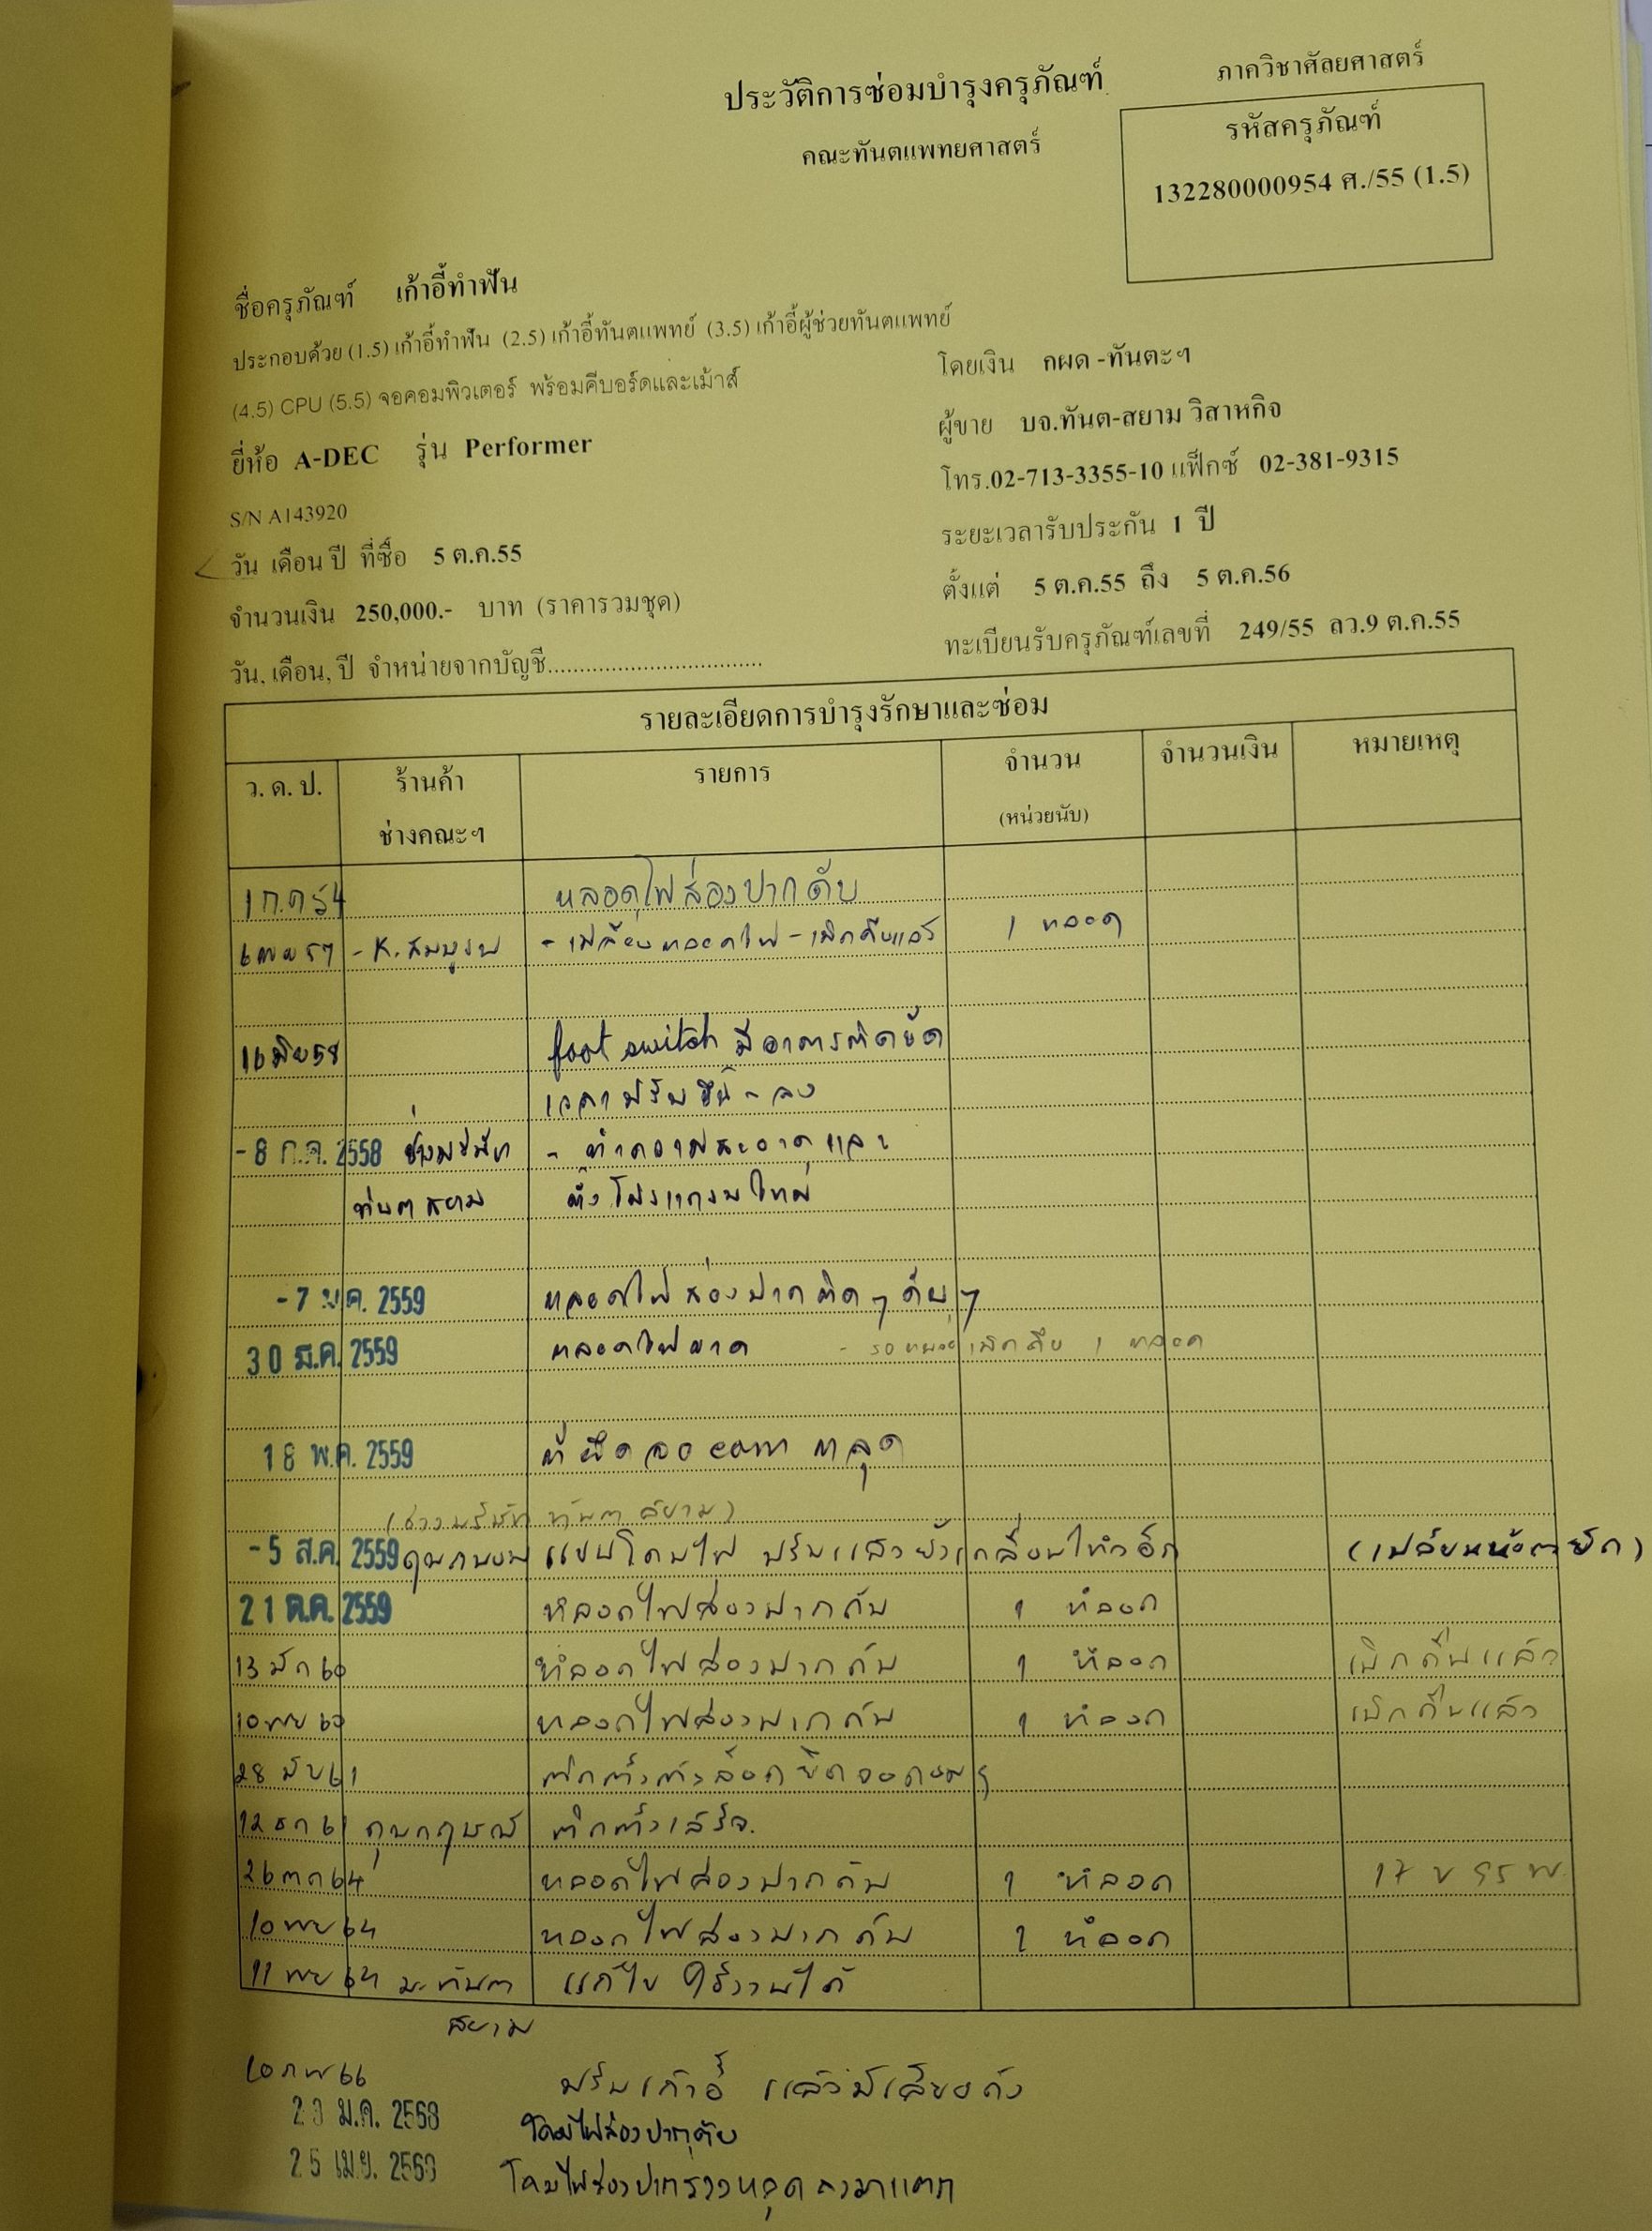 ประวัติการซ่อมบำรุงครุภัณฑ์
ภาควิชาศัลยศาสตร์
คณะทันตแพทยศาสตร์
รหัสครุภัณฑ์
132280000954 ศ./55 (1.5)
ชื่อครุภัณฑ์ เก้าอี้ทำฟัน
ประกอบด้วย (1.5) เก้าอี้ทำฟัน (2.5) เก้าอี้ทันตแพทย์ (3.5) เก้าอี้ผู้ช่วยทันตแพทย์
(4.5) CPU (5.5) จอคอมพิวเตอร์ พร้อมคีบอร์ดและเม้าส์
โดยเงิน กผด -ทันตะฯ
ยี่ห้อ A-DEC รุ่น Performer
ผู้ขาย บจ.ทันต-สยาม วิสาหกิจ
S/N A143920
โทร.02-713-3355-10 แฟ็กซ์ 02-381-9315
วัน เดือน ปี ที่ซื้อ 5 ต.ค.55
ระยะเวลารับประกัน 1 ปี
จำนวนเงิน 250,000.- บาท (ราคารวมชุด)
ตั้งแต่ 5 ต.ค.55 ถึง 5 ต.ค.56
วัน, เดือน, ปี จำหน่ายจากบัญชี.................................
ทะเบียนรับครุภัณฑ์เลขที่ 249/55 ลว.9 ต.ค.55
รายละเอียดการบำรุงรักษาและซ่อม
ว. ด. ป. ร้านค้า ช่างคณะฯ รายการ จำนวน (หน่วยนับ) จำนวนเงิน หมายเหตุ
หลอดไฟส่องปากดับ
57 - K. สมบูรณ์ - เปลี่ยนหลอดไฟ - เบิกคืนแล้ว 1 หลอด
16 มิย 58 foot switch มีอาการติดขัด
เวลาปรับขึ้น - ลง
- 8 ก.ค. 2558 ช่างบริษัท - ทำความสะอาดและ
ทันตสยาม ตั้งโปรแกรมใหม่
- 7 2559 หลอดไฟส่องปากติดๆ ดับๆ
30 มี.ค. 2559 หลอดไฟขาด เบิกคืน 1 หลอด
18 พ.ค. 2559 ที่ยึดจอ com หลุด
(ช่างบริษัท ทันตสยาม)
- 5 ส.ค. 2559 แขนโคมไฟ ปรับแล้ว
21 ต.ค. 2559 หลอดไฟส่องปากดับ 1 หลอด
13 มีค 60 หลอดไฟส่องปากดับ 1 หลอด เบิกคืนแล้ว
10 พย 60 หลอดไฟส่องปากดับ 1 หลอด เบิกคืนแล้ว
28 61 ติดตั้งตัวล็อคยึดจอคอมฯ
12 ธค 61 ติดตั้งเสร็จ.
26 ตค 64 หลอดไฟส่องปากดับ 1 หลอด
10 พย 64 หลอดไฟส่องปากดับ 1 หลอด
11 พย 64 บ.ทันต แก้ไข ใช้งานได้
สยาม
10 กพ 66 ปรับเก้าอี้ แล้วมีเสียงดัง
ม.ค. 2568 โคมไฟส่องปากดับ
25 เม.ย. โคมไฟส่องปาก หลุดลงมาแตก